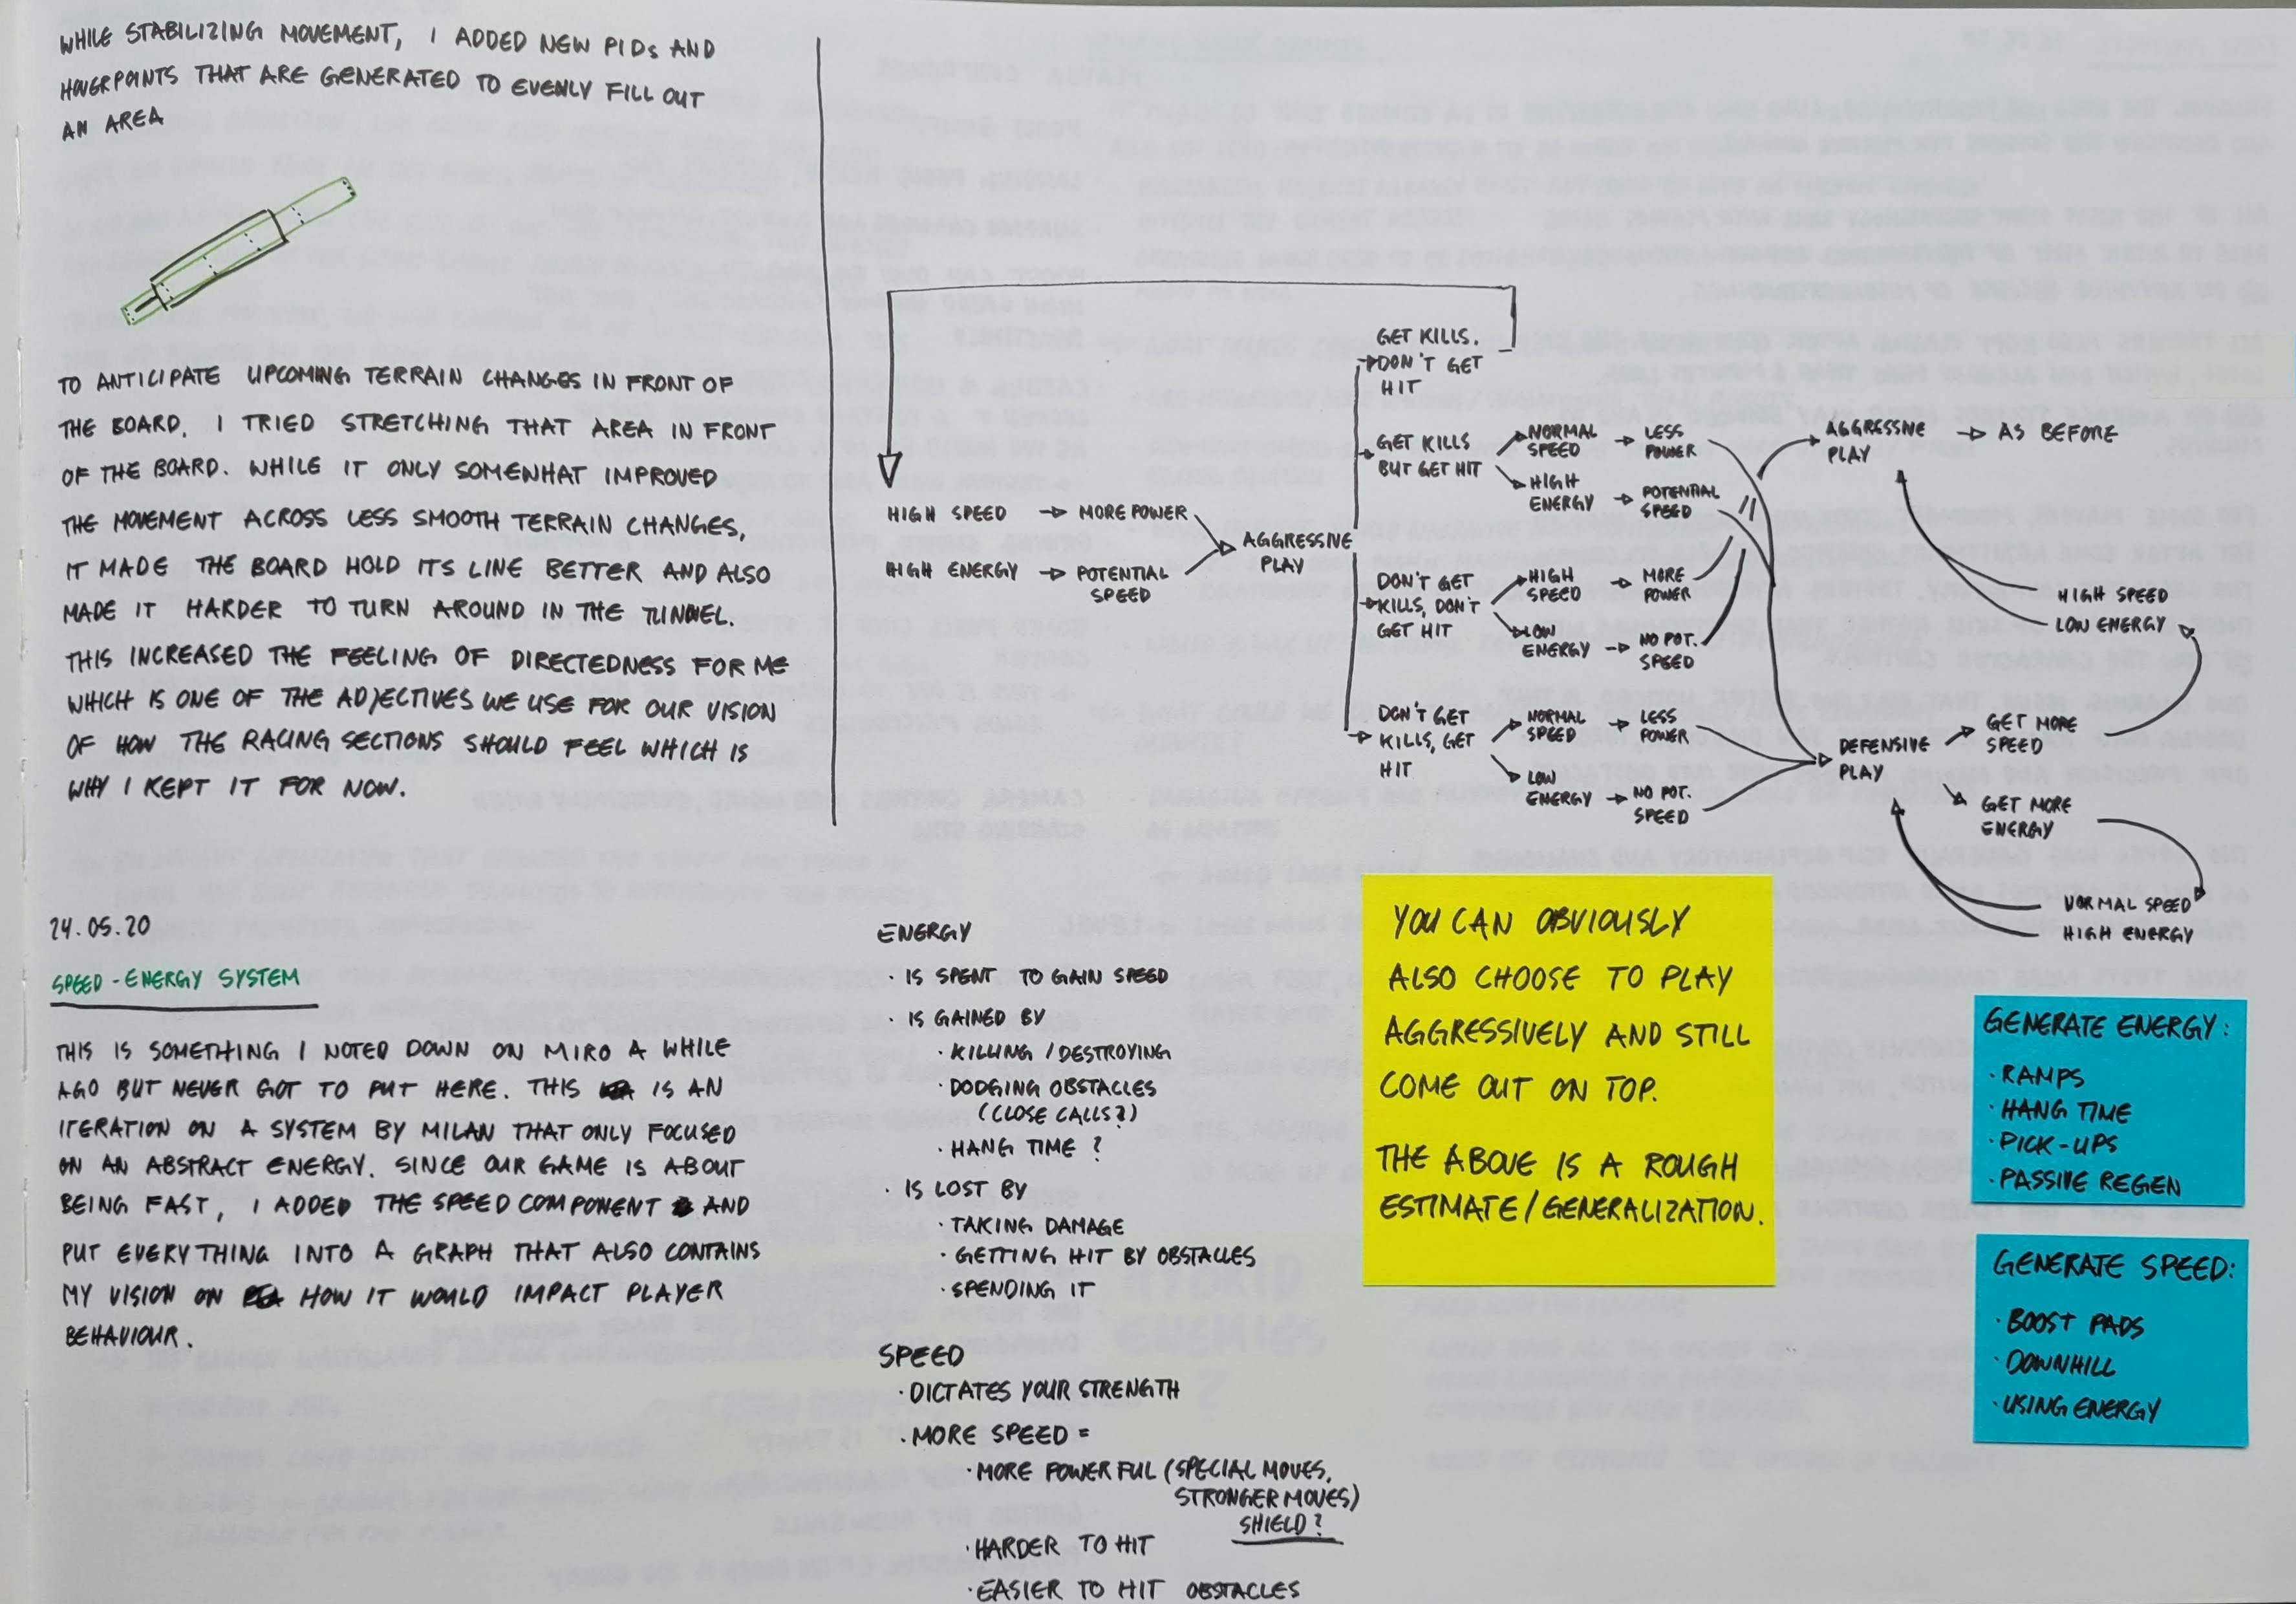 WHILE STABILIZING MOVEMENT, I ADDED NEW PIDs AND
HOVERPOINTS THAT ARE GENERATED TO EVENLY FILL OUT
AN AREA
TO ANTICIPATE UPCOMING TERRAIN CHANGES IN FRONT OF
THE BOARD, I TRIED STRETCHING THAT AREA IN FRONT
OF THE BOARD. WHILE IT ONLY SOMEWHAT IMPROVED
THE MOVEMENT ACROSS LESS SMOOTH TERRAIN CHANGES,
IT MADE THE BOARD HOLD ITS LINE BETTER AND ALSO
MADE IT HARDER TO TURN AROUND IN THE TUNNEL.
THIS INCREASED THE FEELING OF DIRECTEDNESS FOR ME
WHICH IS ONE OF THE ADJECTIVES WE USE FOR OUR VISION
OF HOW THE RACING SECTIONS SHOULD FEEL WHICH IS
WHY I KEPT IT FOR NOW.
24.05.20
SPEED-ENERGY SYSTEM
THIS IS SOMETHING I NOTED DOWN ON MIRO A WHILE
AGO BUT NEVER GOT TO PUT HERE. THIS IS AN
ITERATION ON A SYSTEM BY MILAN THAT ONLY FOCUSED
ON AN ABSTRACT ENERGY. SINCE OUR GAME IS ABOUT
BEING FAST, I ADDED THE SPEED COMPONENT AND
PUT EVERYTHING INTO A GRAPH THAT ALSO CONTAINS
MY VISION ON HOW IT WOULD IMPACT PLAYER
BEHAVIOUR.
HIGH SPEED → MORE POWER
HIGH ENERGY → POTENTIAL
SPEED
AGGRESSIVE
PLAY
GET KILLS.
DON'T GET
HIT
GET KILLS
BUT GET HIT
NORMAL
SPEED
→ LESS
POWER
HIGH
ENERGY
→ POTENTIAL
SPEED
DON'T GET
KILLS, DON'T
GET HIT
HIGH
SPEED
→ MORE
POWER
LOW
ENERGY
→ NO POT.
SPEED
DON'T GET
KILLS, GET
HIT
NORMAL
SPEED
→ LESS
POWER
LOW
ENERGY
→ NO POT.
SPEED
AGGRESSIVE
PLAY
→ AS BEFORE
HIGH SPEED
LOW ENERGY
DEFENSIVE
PLAY
GET MORE
SPEED
GET MORE
ENERGY
NORMAL SPEED
HIGH ENERGY
ENERGY
· IS SPENT TO GAIN SPEED
· IS GAINED BY
· KILLING / DESTROYING
· DODGING OBSTACLES
(CLOSE CALLS?)
· HANG TIME ?
· IS LOST BY
· TAKING DAMAGE
· GETTING HIT BY OBSTACLES
· SPENDING IT
SPEED
· DICTATES YOUR STRENGTH
· MORE SPEED =
· MORE POWERFUL (SPECIAL MOVES,
STRONGER MOVES)
SHIELD?
· HARDER TO HIT
· EASIER TO HIT OBSTACLES
YOU CAN OBVIOUSLY
ALSO CHOOSE TO PLAY
AGGRESSIVELY AND STILL
COME OUT ON TOP.
THE ABOVE IS A ROUGH
ESTIMATE/GENERALIZATION.
GENERATE ENERGY:
· RAMPS
· HANG TIME
· PICK-UPS
· PASSIVE REGEN
GENERATE SPEED:
· BOOST PADS
· DOWNHILL
· USING ENERGY